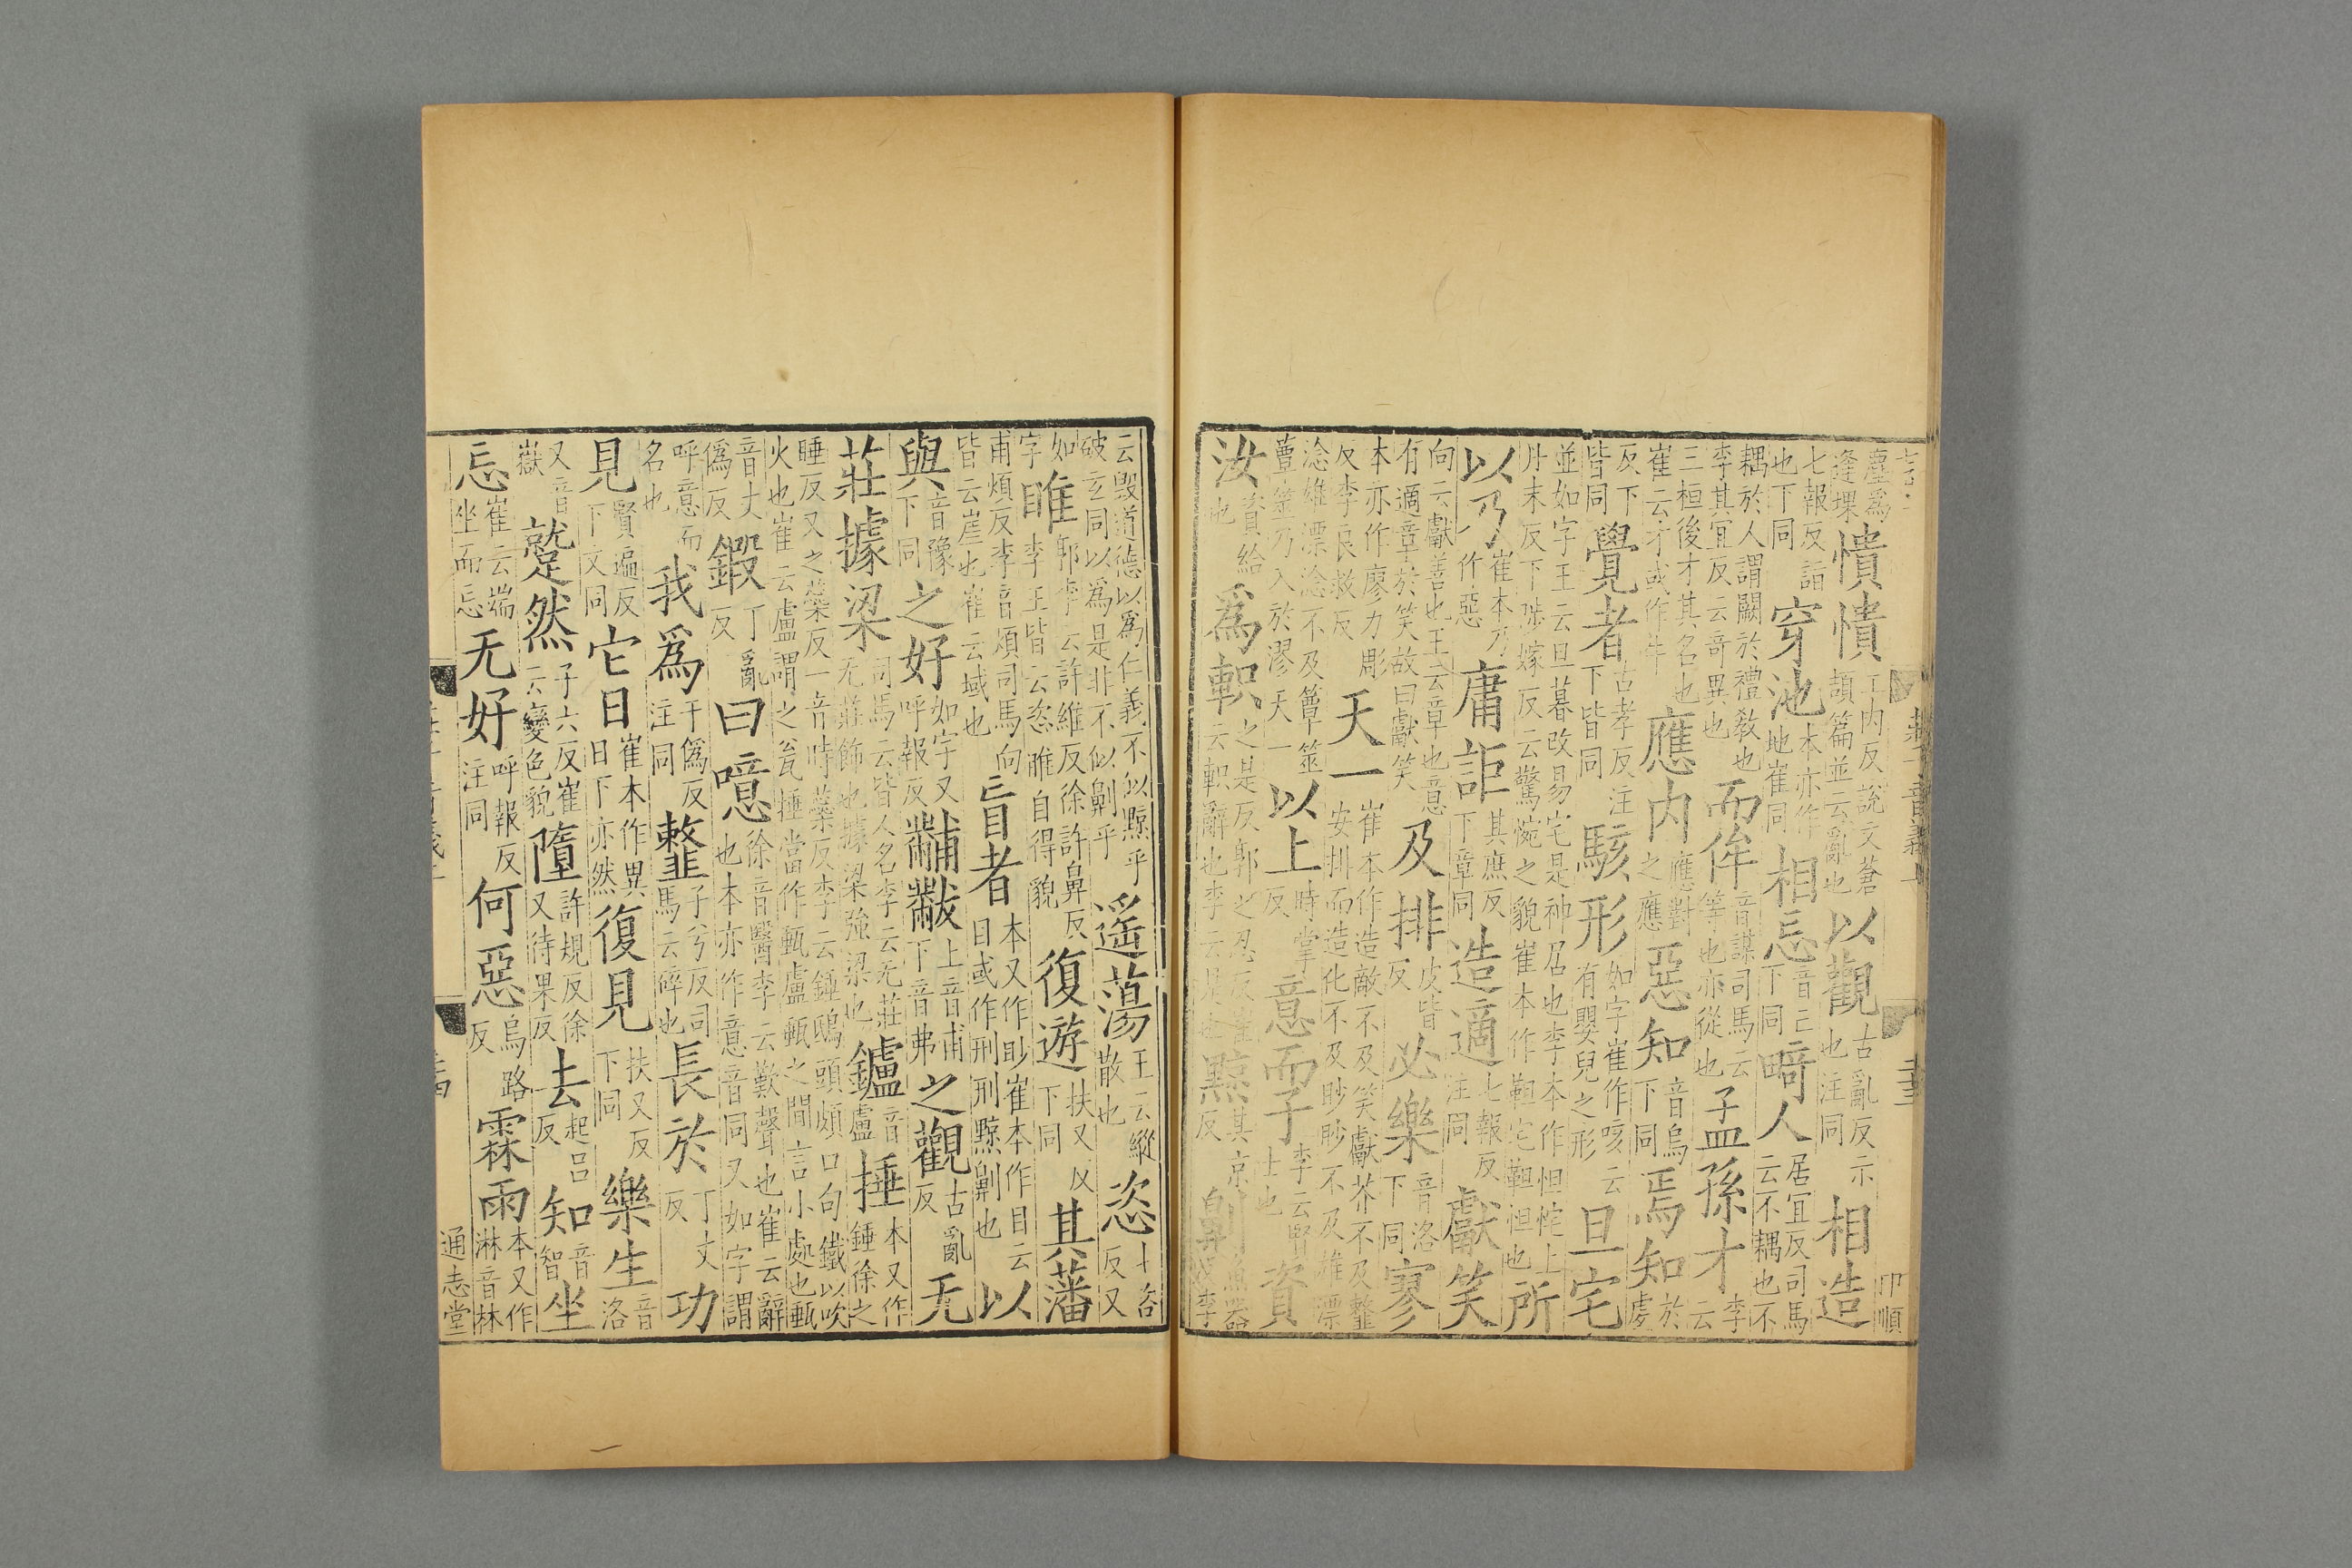 塵爲
逢堁憒憒工内反說文蒼頡篇並云亂也以觀古亂反示也注同相造
七報反詣也下同穿池本亦作地崔同相忘音亡下同畸人居宜反司馬云不耦也不
耦於人謂闕於禮敎也李其宜反云奇異也而侔音謀司馬云等也亦從也孟孫才李云
三桓後才其名也崔云才或作牛應内應對之應惡知音烏下同焉知於虔
反下皆同覺者古孝反注下皆同駭形如字崔作咳云有嬰兒之形旦宅
並如字王云旦暮改易宅是神居也李本作怛㤞上丹末反下陟嫁反云驚惋之貌崔本作靼宅靼怛也所
以乃崔本乃作惡庸詎其庶反下章同造適七報反注同獻笑
向云獻善也王云章也意有適章於笑故曰獻笑及排皮皆反必樂音洛下同寥
本亦作廖力彫反李良救反天一崔本作造敵不及笑獻芥不及整安排而造化不及眇眇不及雄漂
淰雄漂淰不及簟筮簟筮乃入於漻天以上時掌反意而子李云賢士也資
汝資給也爲軹之是反郭之忍反崔云軹辭也李云是也黥其京反劓魚器反李
云毀道德以爲仁義不似黥乎破玄同以爲是非不似劓乎遥蕩王云縱散也恣七咨反又
如字睢郭李云許維反徐許鼻反李王皆云恣睢自得貌復遊扶又反下同其藩
甫煩反李音煩司馬向皆云崖也崔云域也盲者本又作眇崔本作目云目或作刑刑黥劓也以
與音豫下同之好如字又呼報反黼黻上音甫下音弗之觀古亂反无
莊據梁司馬云皆人名李云无莊无莊飾也據梁強梁也鑪音盧捶本又作錘徐之
睡反又之蘂反一音時蘂反李云錘鴟頭頗口句鐵以吹火也崔云盧謂之瓮捶當作甀盧甀之間言小處也甀
音丈僞反鍛丁亂反曰噫徐音醫李云歎聲也崔云辭也本亦作意音同又如字謂
呼意而名也我爲于僞反注同䪠子兮反司馬云碎也長於丁丈反功
見賢遍反下文同它日崔本作異日下亦然復見扶又反下同樂生音洛
又音嶽蹵然子六反崔云變色貌墮許規反徐又待果反去起呂反知音智坐
忘崔云端坐而忘无好呼報反注同何惡烏路反霖雨本又作淋音林
通志堂